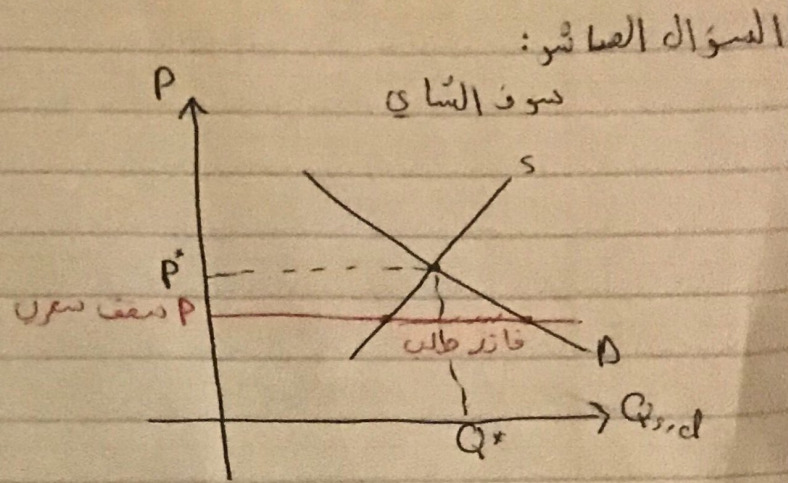 السؤال العاشر:
سوق الشاي
P
S
P*
P سقف سعري
فائض طلب
D
Qs,d
Q*